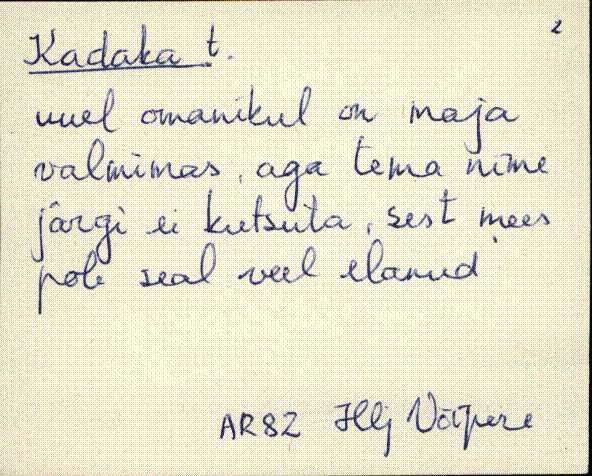 2
Kadaka t.
uuel omanikul on maja
valmimas, aga tema nime
järgi ei kutsuta, sest mees
pole seal veel elanud
AR82 Hlj Võipere